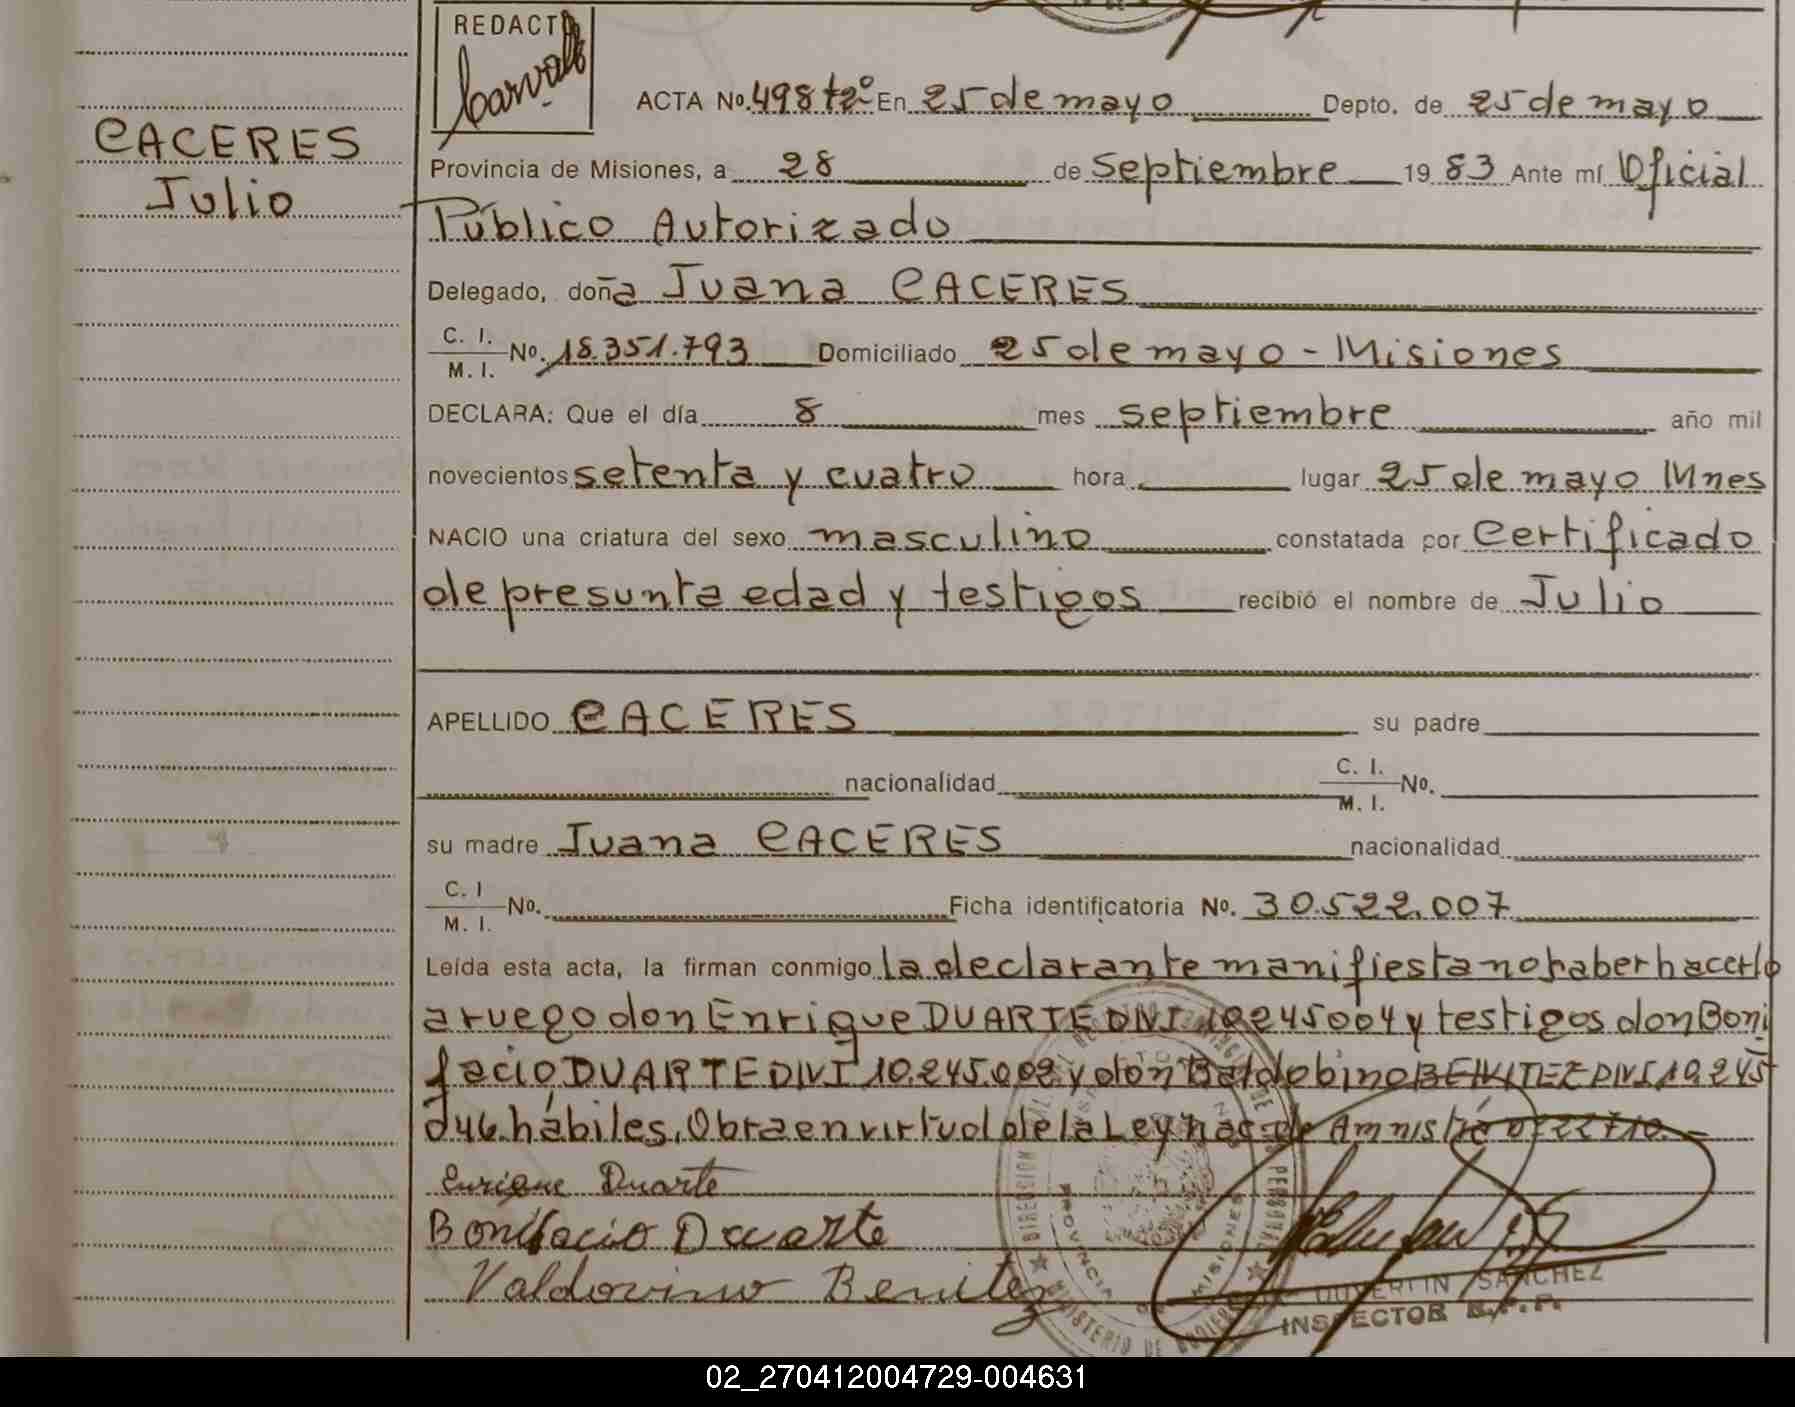 REDACTO
Carvallo
ACTA No. 498 t2º En 25 de mayo Depto. de 25 de mayo
CACERES
Julio
Provincia de Misiones, a 28 de septiembre 19 83 Ante mí Oficial
Público Autorizado
Delegado, doña Juana CACERES
C. I. M. I. No. 18.351.793 Domiciliado 25 de mayo - Misiones
DECLARA: Que el día 8 mes septiembre año mil
novecientos setenta y cuatro hora lugar 25 de mayo Mnes
NACIO una criatura del sexo masculino constatada por Certificado
de presunta edad y testigos recibió el nombre de Julio
APELLIDO CACERES su padre
nacionalidad C. I. M. I. No.
su madre Juana CACERES nacionalidad
C. I M. I. No. Ficha identificatoria No. 30.522.007
Leída esta acta, la firman conmigo la declarante manifiesta no haber hacerlo
a ruego don Enrique DUARTE DNI 10.245004 y testigos don Boni
facio DUARTE DNI 10.245.002 y don Baldobino BENITEZ DNI 10.245
046. hábiles. Obra en virtud de la Ley nac. de Amnistía nº 22710.
Enrique Duarte
Bonifacio Duarte
Valdovino Benitez
SANCHEZ
INSPECTOR R.P.P.
02_270412004729-004631